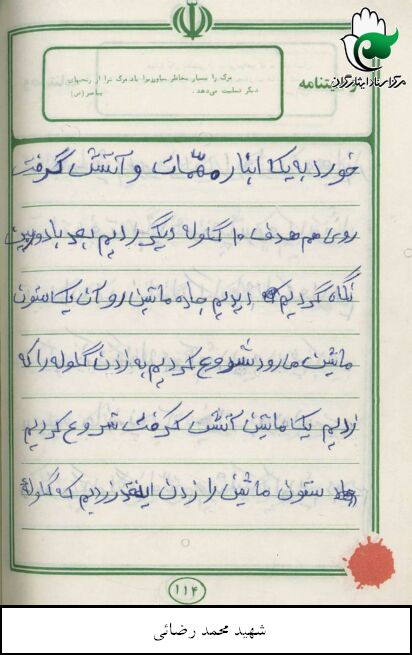 مرکز اسناد ایثارگران
وصیتنامه
مرگ را بسیار بخاطر بیاورید زیرا یاد مرگ ترا از رنجهای
دیگر تسلیت می‌دهد.
پیامبر (ص)
خورد به یک انبار مهمات و آتش گرفت
روی هم هدف ۱۰ گلوله دیگر زدیم بعد با دوربین
نگاه کردیم که دیدیم جاده ماشین رو آن یک ستون
ماشین می‌رود شروع کردیم به زدن گلوله را که
زدیم یک ماشین آتش گرفت شروع کردیم
ستون ماشین را زدن اینقدر زدیم که گلوله
۱۱۴
شهید محمد رضائی